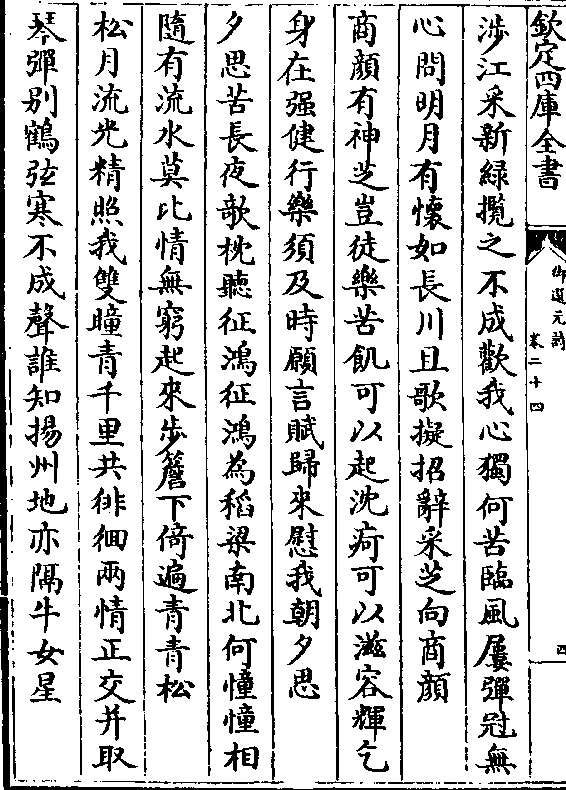 欽定四庫全書
御選元詩
卷二十四
四
涉江采新緑攬之不成歡我心獨何苦臨風屢彈冠無
心問明月有懷如長川且歌擬招辭采芝向商顔
商顔有神芝豈徒樂苦飢可以起沈疴可以滋容輝乞
身在强健行樂須及時願言賦歸來慰我朝夕思
夕思苦長夜欹枕聽征鴻征鴻為稻粱南北何憧憧相
隨有流水莫比情無窮起來步簷下倚遍青青松
松月流光精照我雙瞳青千里共徘徊兩情正交并取
琴彈别鶴弦寒不成聲誰知揚州地亦隔牛女星